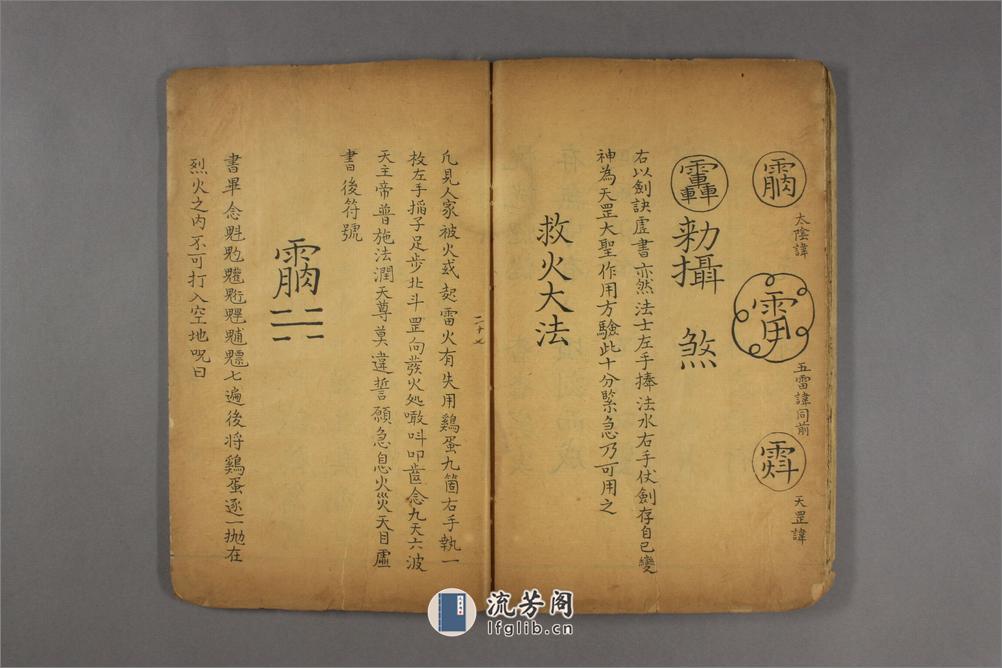 太陰諱
五雷諱同前
天罡諱
勅攝 煞
右以劍訣虛書亦然法士左手捧法水右手仗劍存自己變
神為天罡大聖作用方驗此十分緊急乃可用之
救火大法
二十七
凢見人家被火或起雷火有失用鷄蛋九箇右手執一
枚左手搯子足步北斗罡向發火処噉呌叩齒念九天六波
天主帝普施法潤天尊莫違誓願急息火災天目虛
書後符號
書畢念魁𩲃䰢魓魒七遍後将鷄蛋逐一抛在
烈火之内不可打入空地呪曰
流芳阁
lfglib.cn